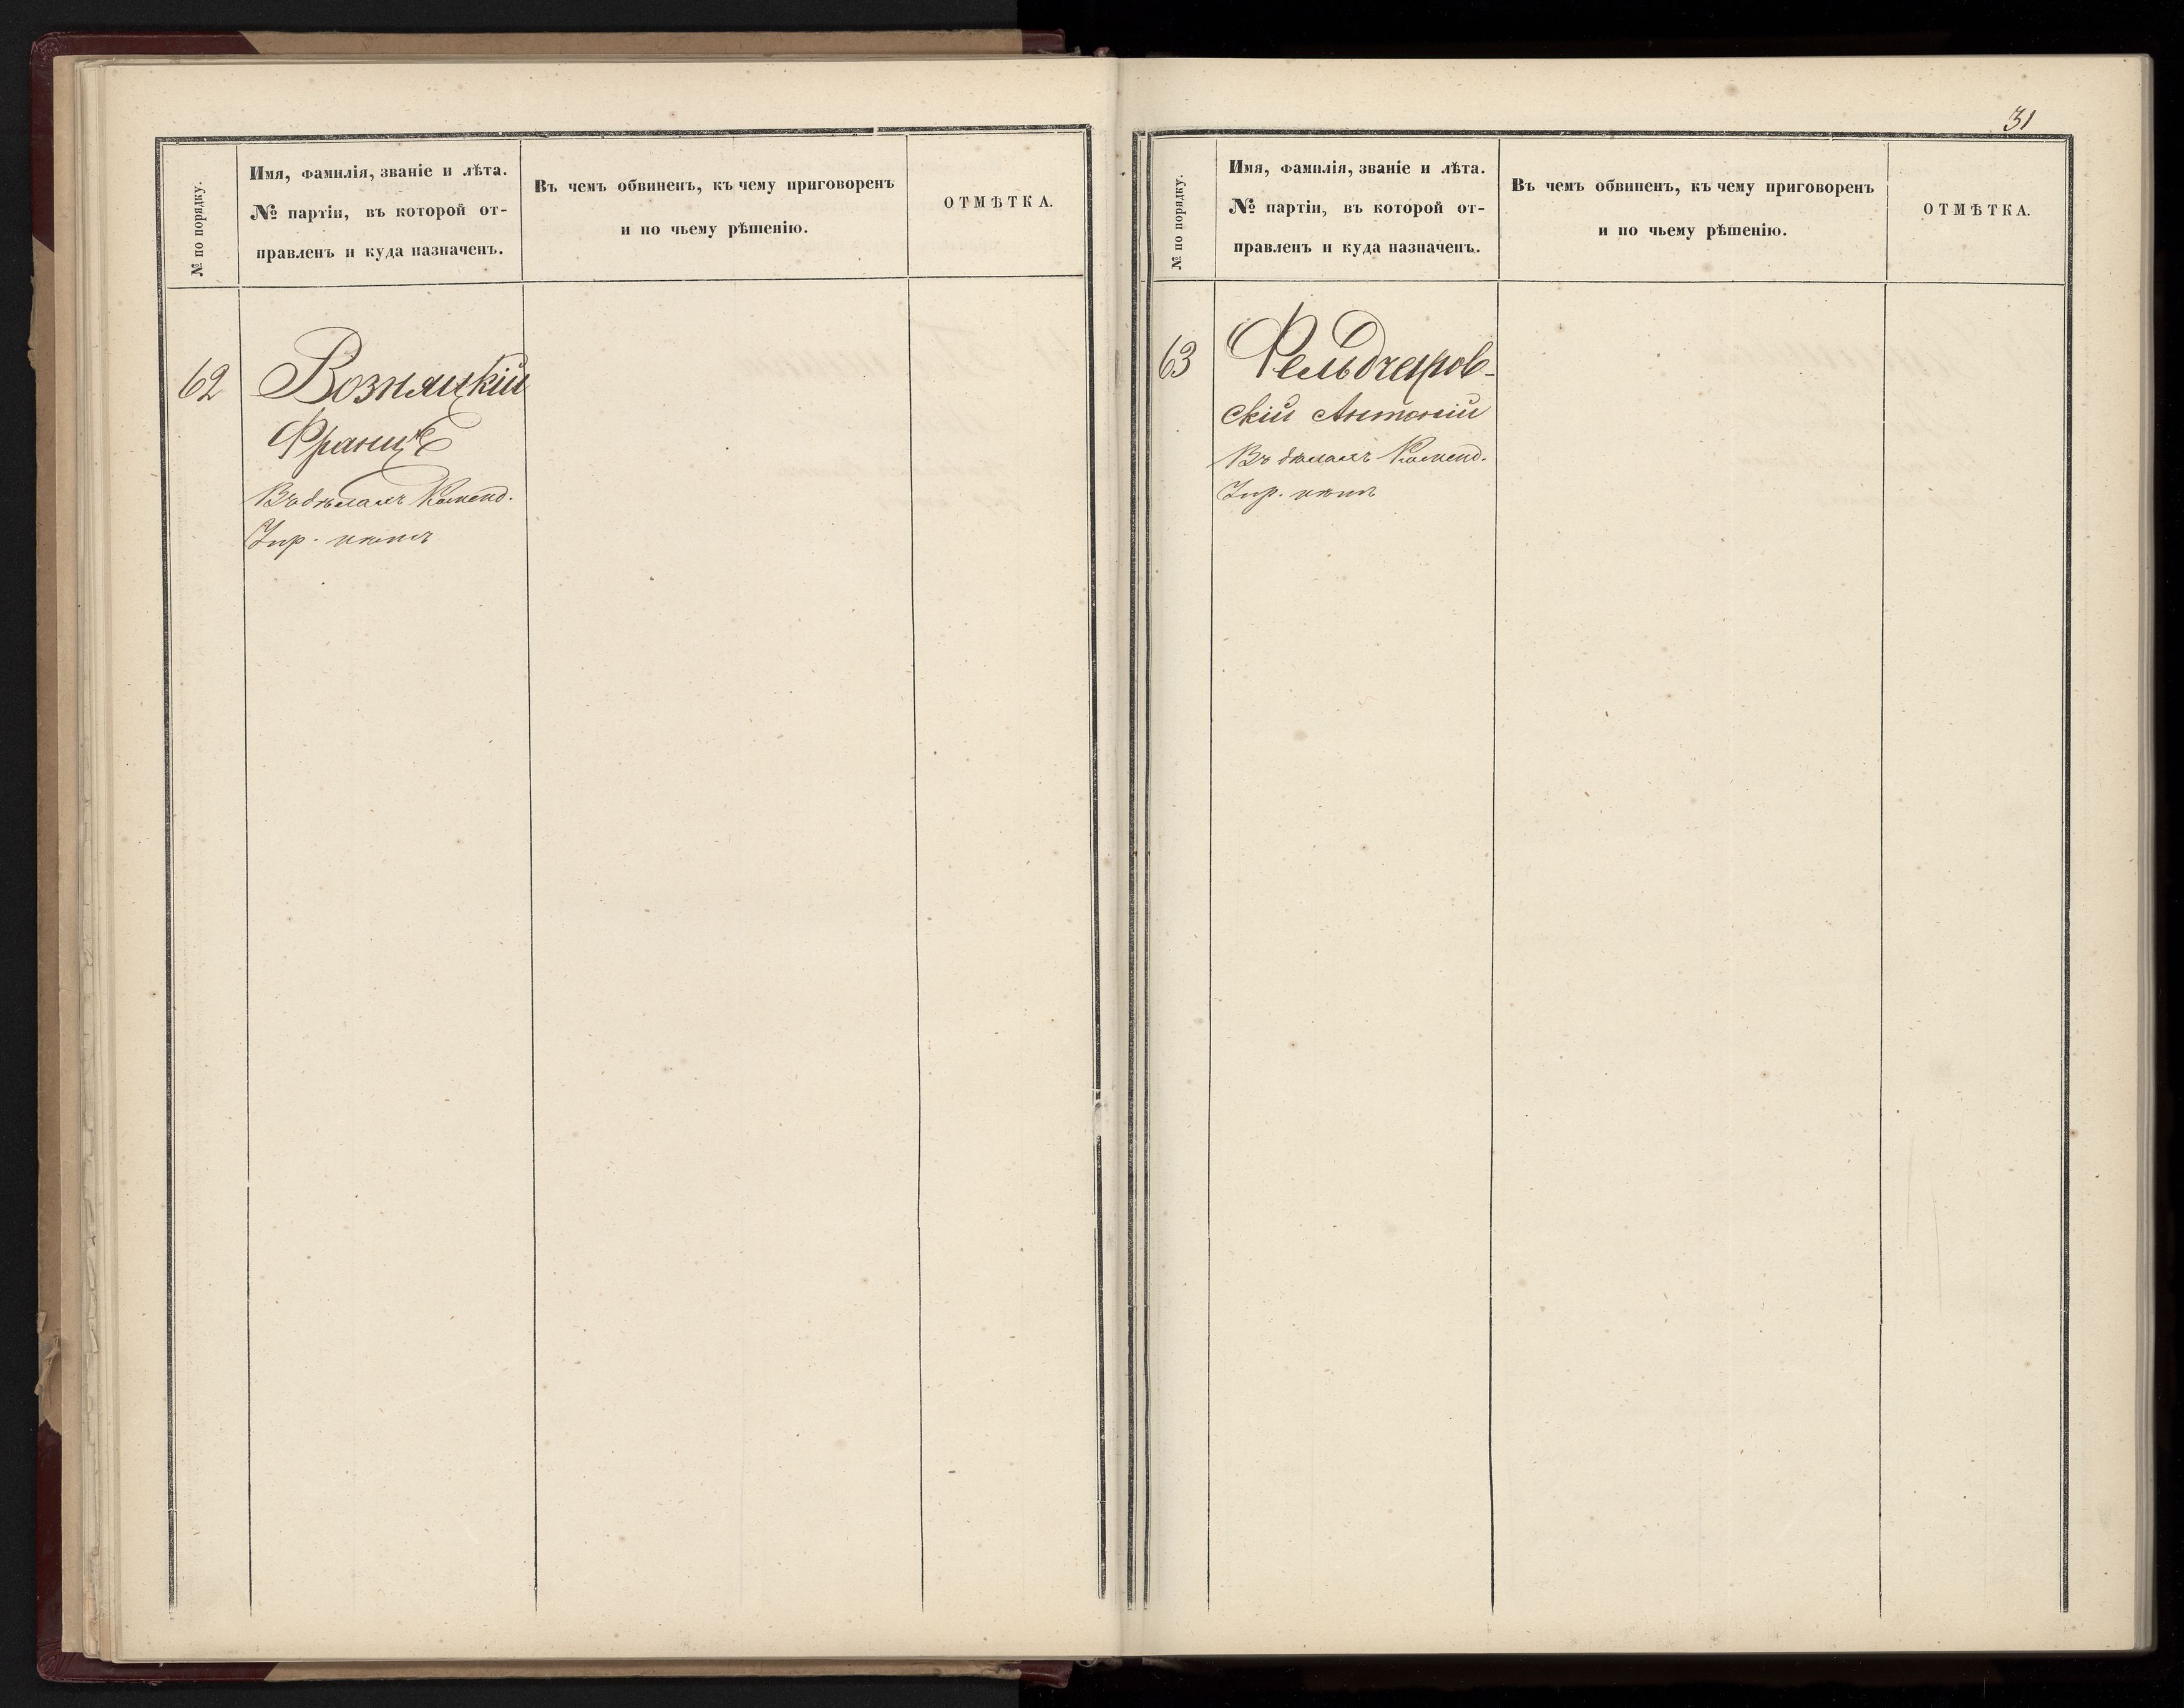 № по порядку.
Имя, фамилія, званіе и лѣта.
№ партіи, въ которой от-
правленъ и куда назначенъ.
Въ чемъ обвиненъ, къ чему приговоренъ
и по чьему рѣшенію.
ОТМѢТКА.
62
Возняцкій
Францъ
Въ дѣлахъ Коменд.
Упр. нѣтъ
31
№ по порядку.
Имя, фамилія, званіе и лѣта.
№ партіи, въ которой от-
правленъ и куда назначенъ.
Въ чемъ обвиненъ, къ чему приговоренъ
и по чьему рѣшенію.
ОТМѢТКА.
63
Фельдчеров-
скій Антоній
Въ дѣлахъ Коменд.
Упр. нѣтъ